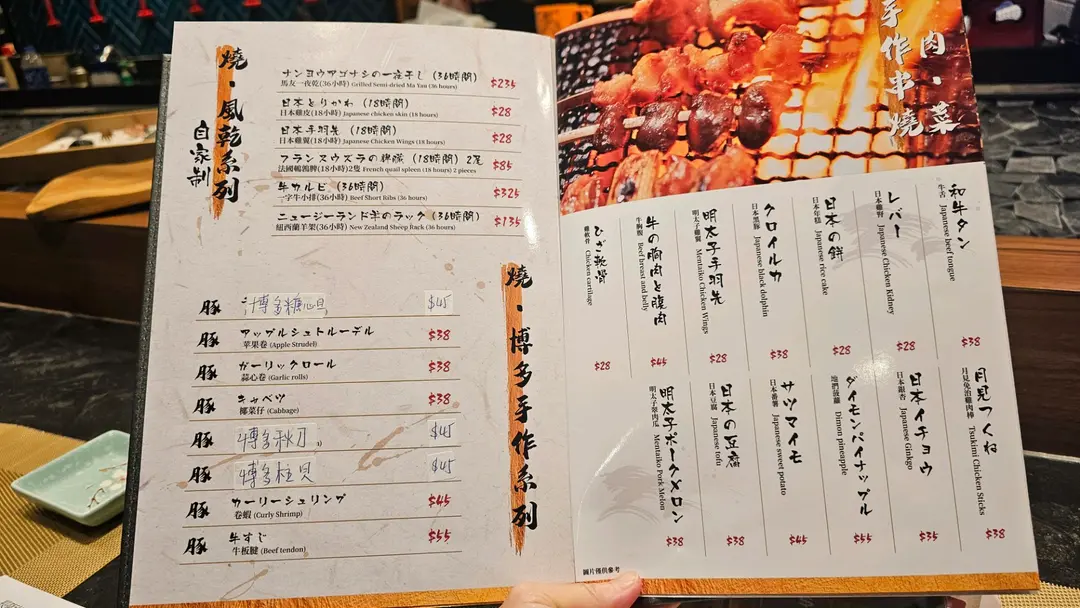 燒・風乾系列
自家制
ナンヨウアゴナシの一夜干し (36時間)
馬友一夜乾(36小時) Grilled Semi-dried Ma Yau (36 hours)
$235
日本とりかわ (18時間)
日本雞皮(18小時) Japanese chicken skin (18 hours)
$28
日本手羽先 (18時間)
日本雞翼(18小時) Japanese Chicken Wings (18 hours)
$28
フランスウズラの脾臓 (18時間) 2尾
法國鵪鶉脾(18小時)2隻 French quail spleen (18 hours) 2 pieces
$85
牛カルビ (36時間)
一字牛小排(36小時) Beef Short Ribs (36 hours)
$325
ニュージーランド羊のラック (36時間)
紐西蘭羊架(36小時) New Zealand Sheep Rack (36 hours)
$135
燒・博多手作系列
豚
$45
豚 アップルシュトルーデル
苹果卷 (Apple Strudel)
$38
豚 ガーリックロール
蒜心卷 (Garlic rolls)
$38
豚 キャベツ
椰菜仔 (Cabbage)
$38
豚 博多秋刀
$45
豚 博多桂貝
$45
豚 カーリーシュリンプ
卷蝦 (Curly Shrimp)
$45
豚 牛すじ
牛板腱 (Beef tendon)
$55
手作串燒
肉・菜
和牛タン
牛舌 Japanese beef tongue
$38
レバー
日本雞腎 Japanese Chicken Kidney
$28
日本の餅
日本年糕 Japanese rice cake
$28
クロイルカ
日本黑豚 Japanese black dolphin
$38
明太子手羽先
明太子雞翼 Mentaiko Chicken Wings
$28
牛の胸肉と腹肉
牛胸腹 Beef breast and belly
$45
ひざ軟骨
雞軟骨 Chicken cartilage
$28
月見つくね
月見免治雞肉棒 Tsukimi Chicken Sticks
$38
日本イチョウ
日本銀杏 Japanese Ginkgo
$35
ダイモンパイナップル
地捫菠蘿 Dimon pineapple
$55
サツマイモ
日本番薯 Japanese sweet potato
$45
日本の豆腐
日本豆腐 Japanese tofu
$38
明太子ポークメロン
明太子翠肉瓜 Mentaiko Pork Melon
$38
圖片僅供參考